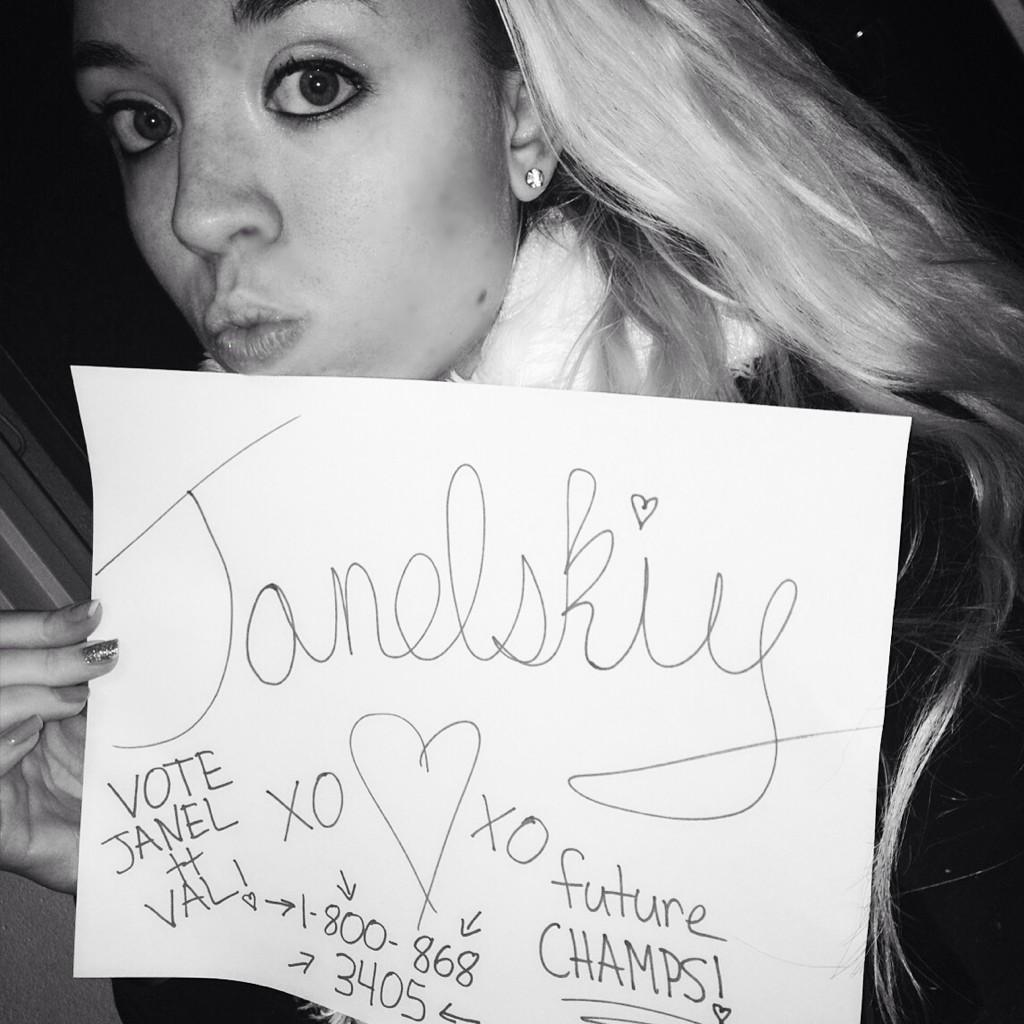 Janelskiy
XO XO
VOTE
JANEL
#
VAL!
1-800-868
3405
future
CHAMPS!